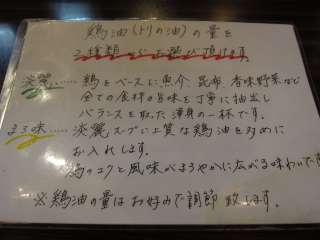 鶏油(トリの油)の量を
2種類からお選び頂けます。
淡麗……鶏をベースに魚介、昆布、香味野菜など
全ての食材の旨味を丁寧に抽出し
バランスを取った渾身の一杯です。
まろ味……淡麗スープに上質な鶏油を多めに
お入れします。
油のコクと風味がまろやかに広がる味わいです
※鶏油の量はお好みで調節致します。